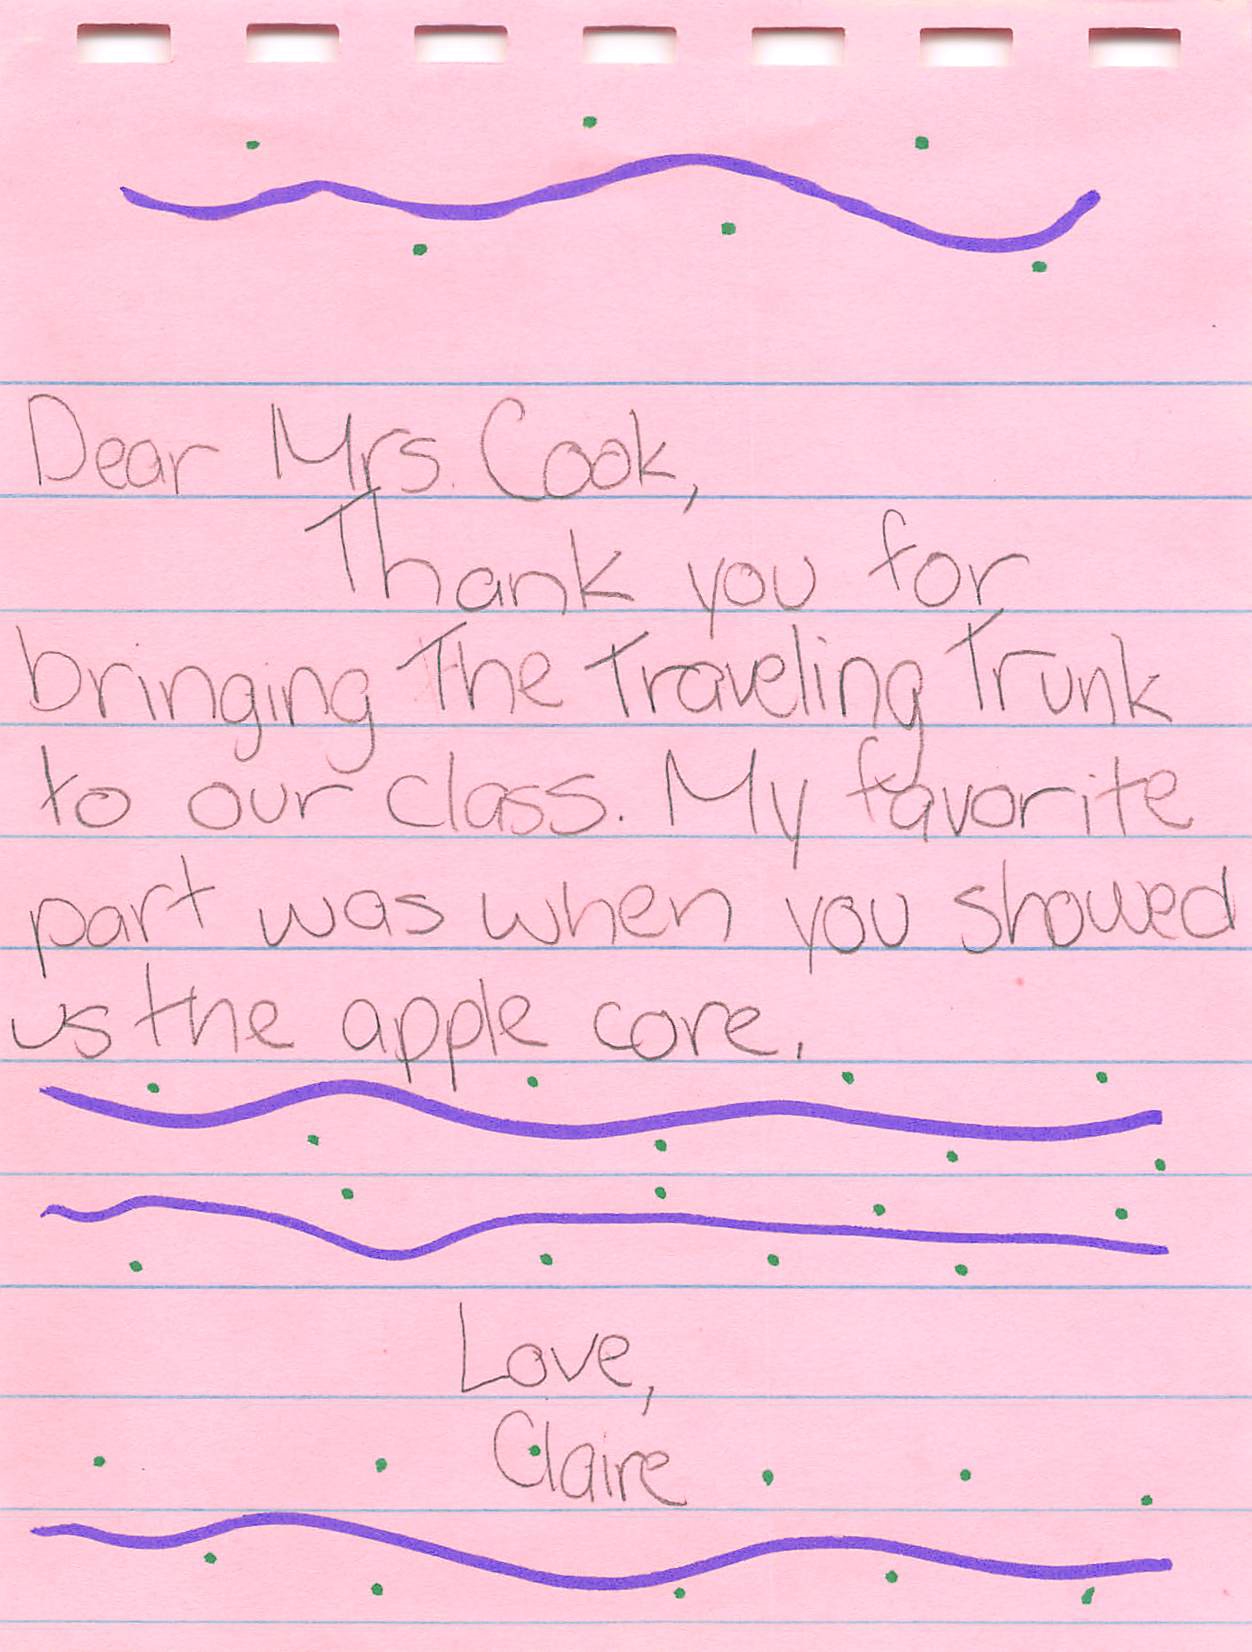 Dear Mrs. Cook,
Thank you for
bringing The Traveling Trunk
to our class. My favorite
part was when you showed
us the apple core.
Love,
Claire